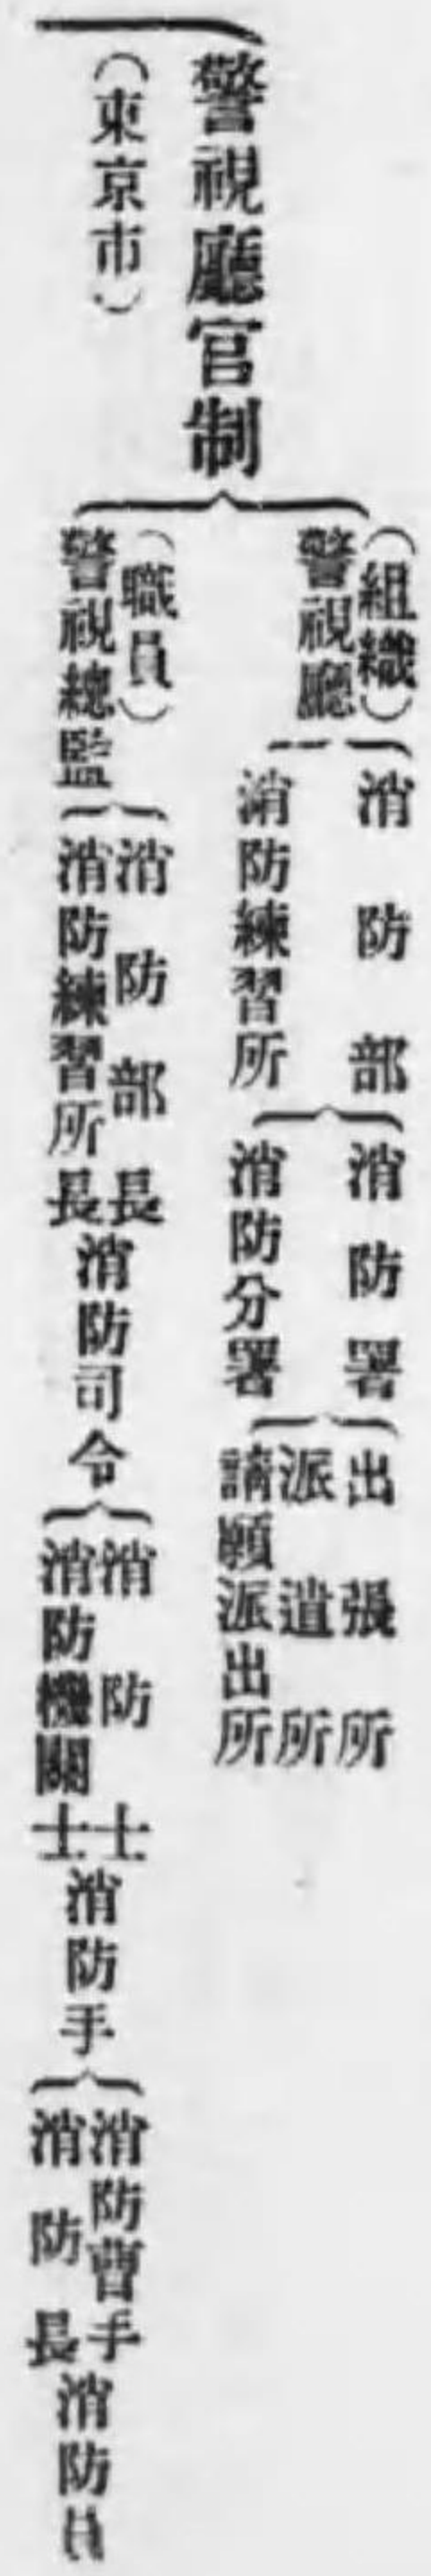 警視廳官制
（東京市）
（組織）
警視廳
消防部
消防練習所
消防署
消防分署
出張所
派遣所
請願派出所
（職員）
警視總監
消防部長
消防練習所長
消防司令
消防士
消防機關士
消防手
消防曹手
消防長
消防員